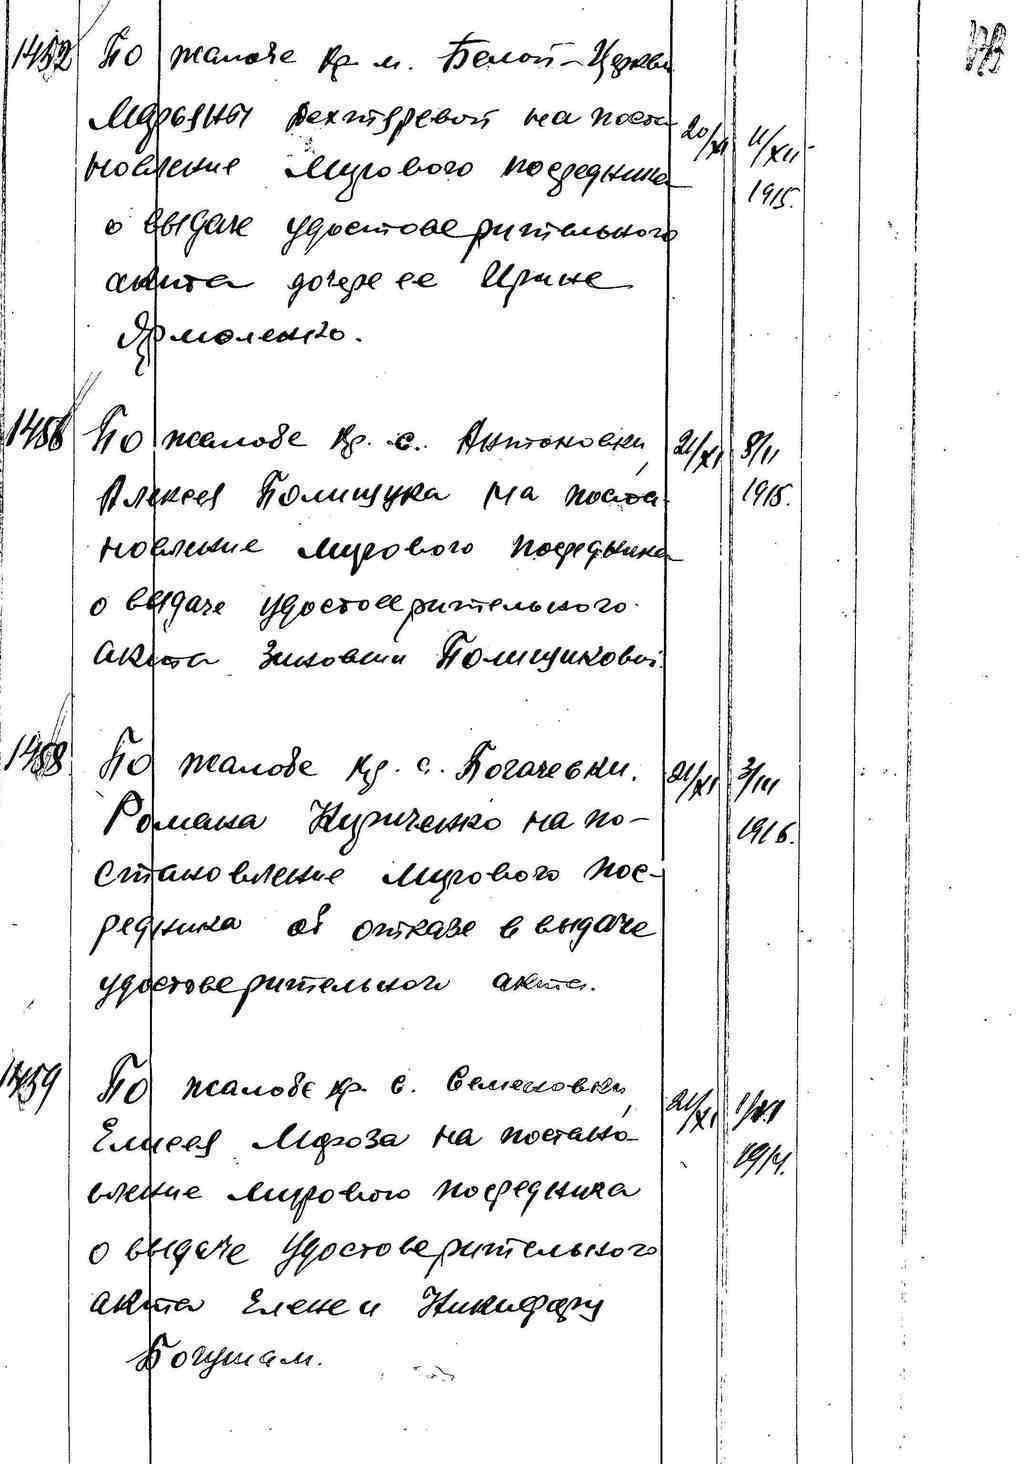 1452 По жалобе кр. м. Белой-Церкви
Марьяны Бехтыревой на поста-
20/XI 11/XII
новление Мирового посредника
1915.
о выдаче удостоверительного
акта дочере ее Ирине
Ярмоленко.
1456 По жалобе кр. с. Антоновки, 21/XI 8/II
Алексея Полищука на поста-
1915.
новление мирового посредника
о выдаче удостоверительного
акта Зиновии Полищиковой.
1458 По жалобе кр. с. Богачевки. 21/XI 3/III
Романа Кириченко на по-
1916.
становление мирового пос-
редника об отказе в выдаче
удостоверительного акта.
1459 По жалобе кр. с. Семеновки, 21/XI
Елисея Мороза на постано-
1914.
вление мирового посредника
о выдаче удостоверительного
акта Елене и Никифору
Богушам.